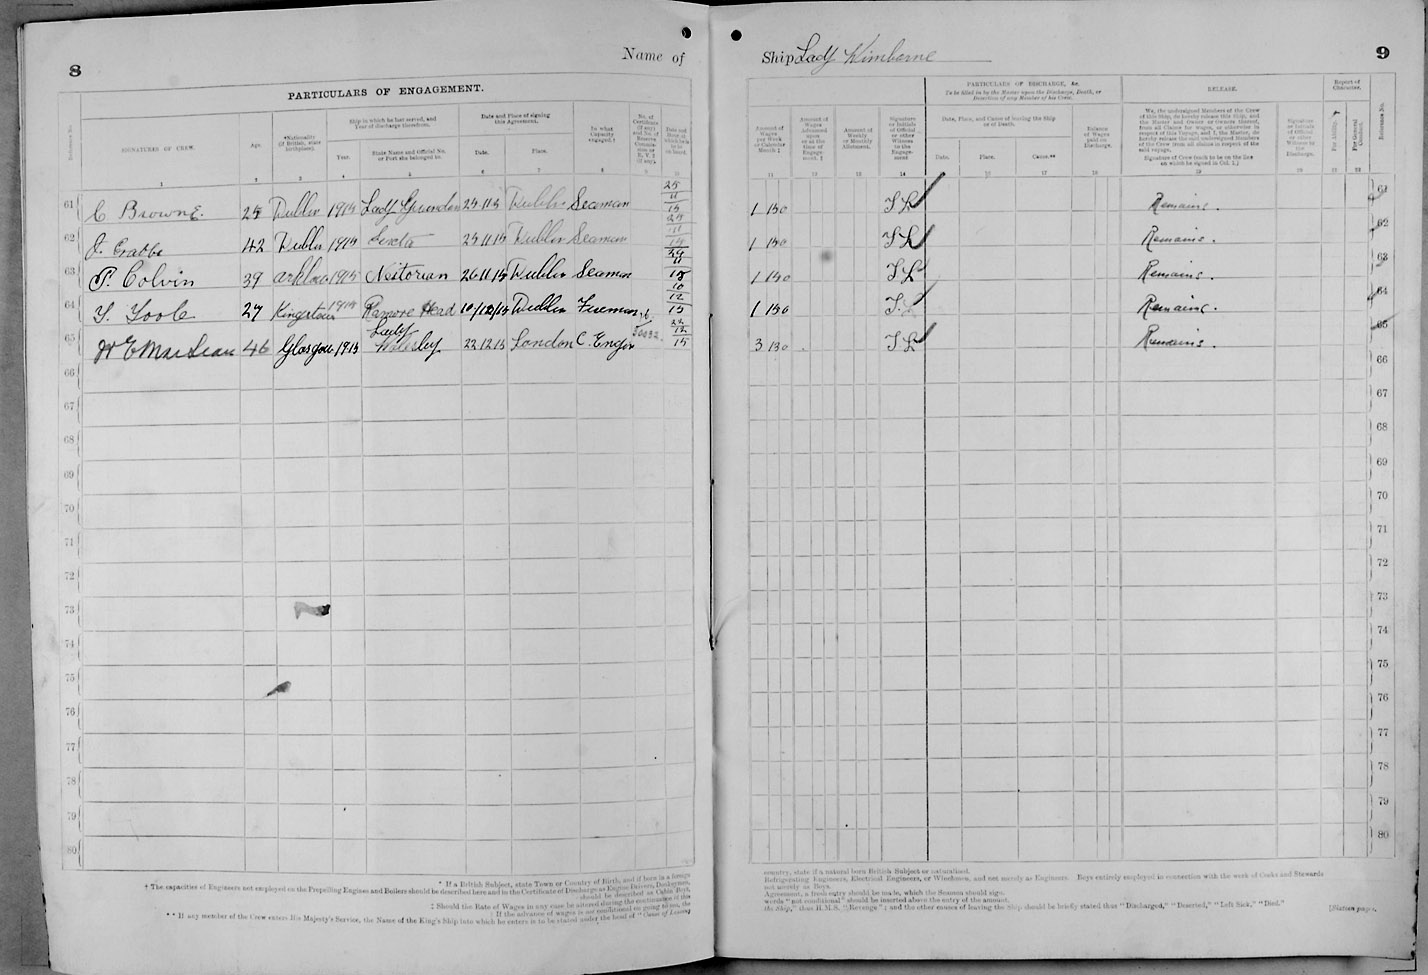 8
Name of
PARTICULARS OF ENGAGEMENT.
SIGNATURES OF CREW.
Age.
*Nationality (if British, state birthplace).
Ship in which he last served, and Year of discharge therefrom.
Year.
State Name and Official No. or Port she belonged to.
Date and Place of signing this Agreement.
Date.
Place.
In what Capacity engaged.†
1 2 3 4 5 6 7 8 9 10
61 C Browne. 25 Dublin 1915 Lady Gwendolen 25 11 15 Dublin Seaman 25/11/15
62 J. Crabbe 42 Dublin 1915 25 11 15 Dublin Seaman 25/11/15
63 P. Colvin 39 Arklow 1915 Nestorian 26 11 15 Dublin Seaman
64 T. Toole 27 Kingstown 1915 Ramore Head 10/12/15 Dublin Fireman 10/12/15
65 46 Glasgow 1915 Lady Wolesley 22 12 15 London C. Engin 22/12/15
66
67
68
69
70
71
72
73
74
75
76
77
78
79
80
* If a British Subject, state Town or Country of Birth, and if born in a foreign
† The capacities of Engineers not employed on the Propelling Engines and Boilers should be described here and in the Certificate of Discharge as Engine Drivers, Donkeymen,
should be described as Cabin Boys,
‡ Should the Rate of Wages in any case be altered during the continuation of this
If the advance of wages is not conditional on going to sea, the
** If any member of the Crew enters His Majesty's Service, the Name of the King's Ship into which he enters is to be stated under the head of "Cause of Leaving
Ship Lady Wimborne
9
PARTICULARS OF DISCHARGE, &c.
To be filled in by the Master upon the Discharge, Death, or Desertion of any Member of his Crew.
RELEASE.
Report of Character.
Amount of Wages per Week or Calendar Month ‡
Amount of Wages Advanced upon or at the time of Engagement. ‡
Amount of Weekly or Monthly Allotment.
Signature or Initials of Official or other Witness to the Engagement
Date, Place, and Cause of leaving the Ship or of Death.
Date.
Place.
Cause.**
Balance of Wages paid on Discharge.
We, the undersigned Members of the Crew of this Ship, do hereby release this Ship, and the Master and Owner or Owners thereof, from all Claims for wages, or otherwise in respect of this Voyage, and I, the Master, do hereby release the said undersigned Members of the Crew from all claims in respect of the said voyage.
Signature of Crew (each to be on the line on which he signed in Col. 1.)
Signature or Initials of Official or other Witness to the Discharge.
For Ability.
For General Conduct.
Reference No.
11 12 13 14 15 16 17 18 19 20 21 22
1 15 0 Remains. 61
1 15 0 Remains. 62
1 15 0 Remains. 63
1 15 0 Remains. 64
3 13 0 Remains. 65
66
67
68
69
70
71
72
73
74
75
76
77
78
79
80
country, state if a natural born British Subject or naturalised.
Refrigerating Engineers, Electrical Engineers, or Winchmen, and not merely as Engineers. Boys entirely employed in connection with the work of Cooks and Stewards
not merely as Boys.
Agreement, a fresh entry should be made, which the Seaman should sign.
words "not conditional" should be inserted above the entry of the amount.
the Ship," thus H.M.S. "Revenge"; and the other causes of leaving the Ship should be briefly stated thus "Discharged," "Deserted," "Left Sick," "Died."
[Sixteen pages.